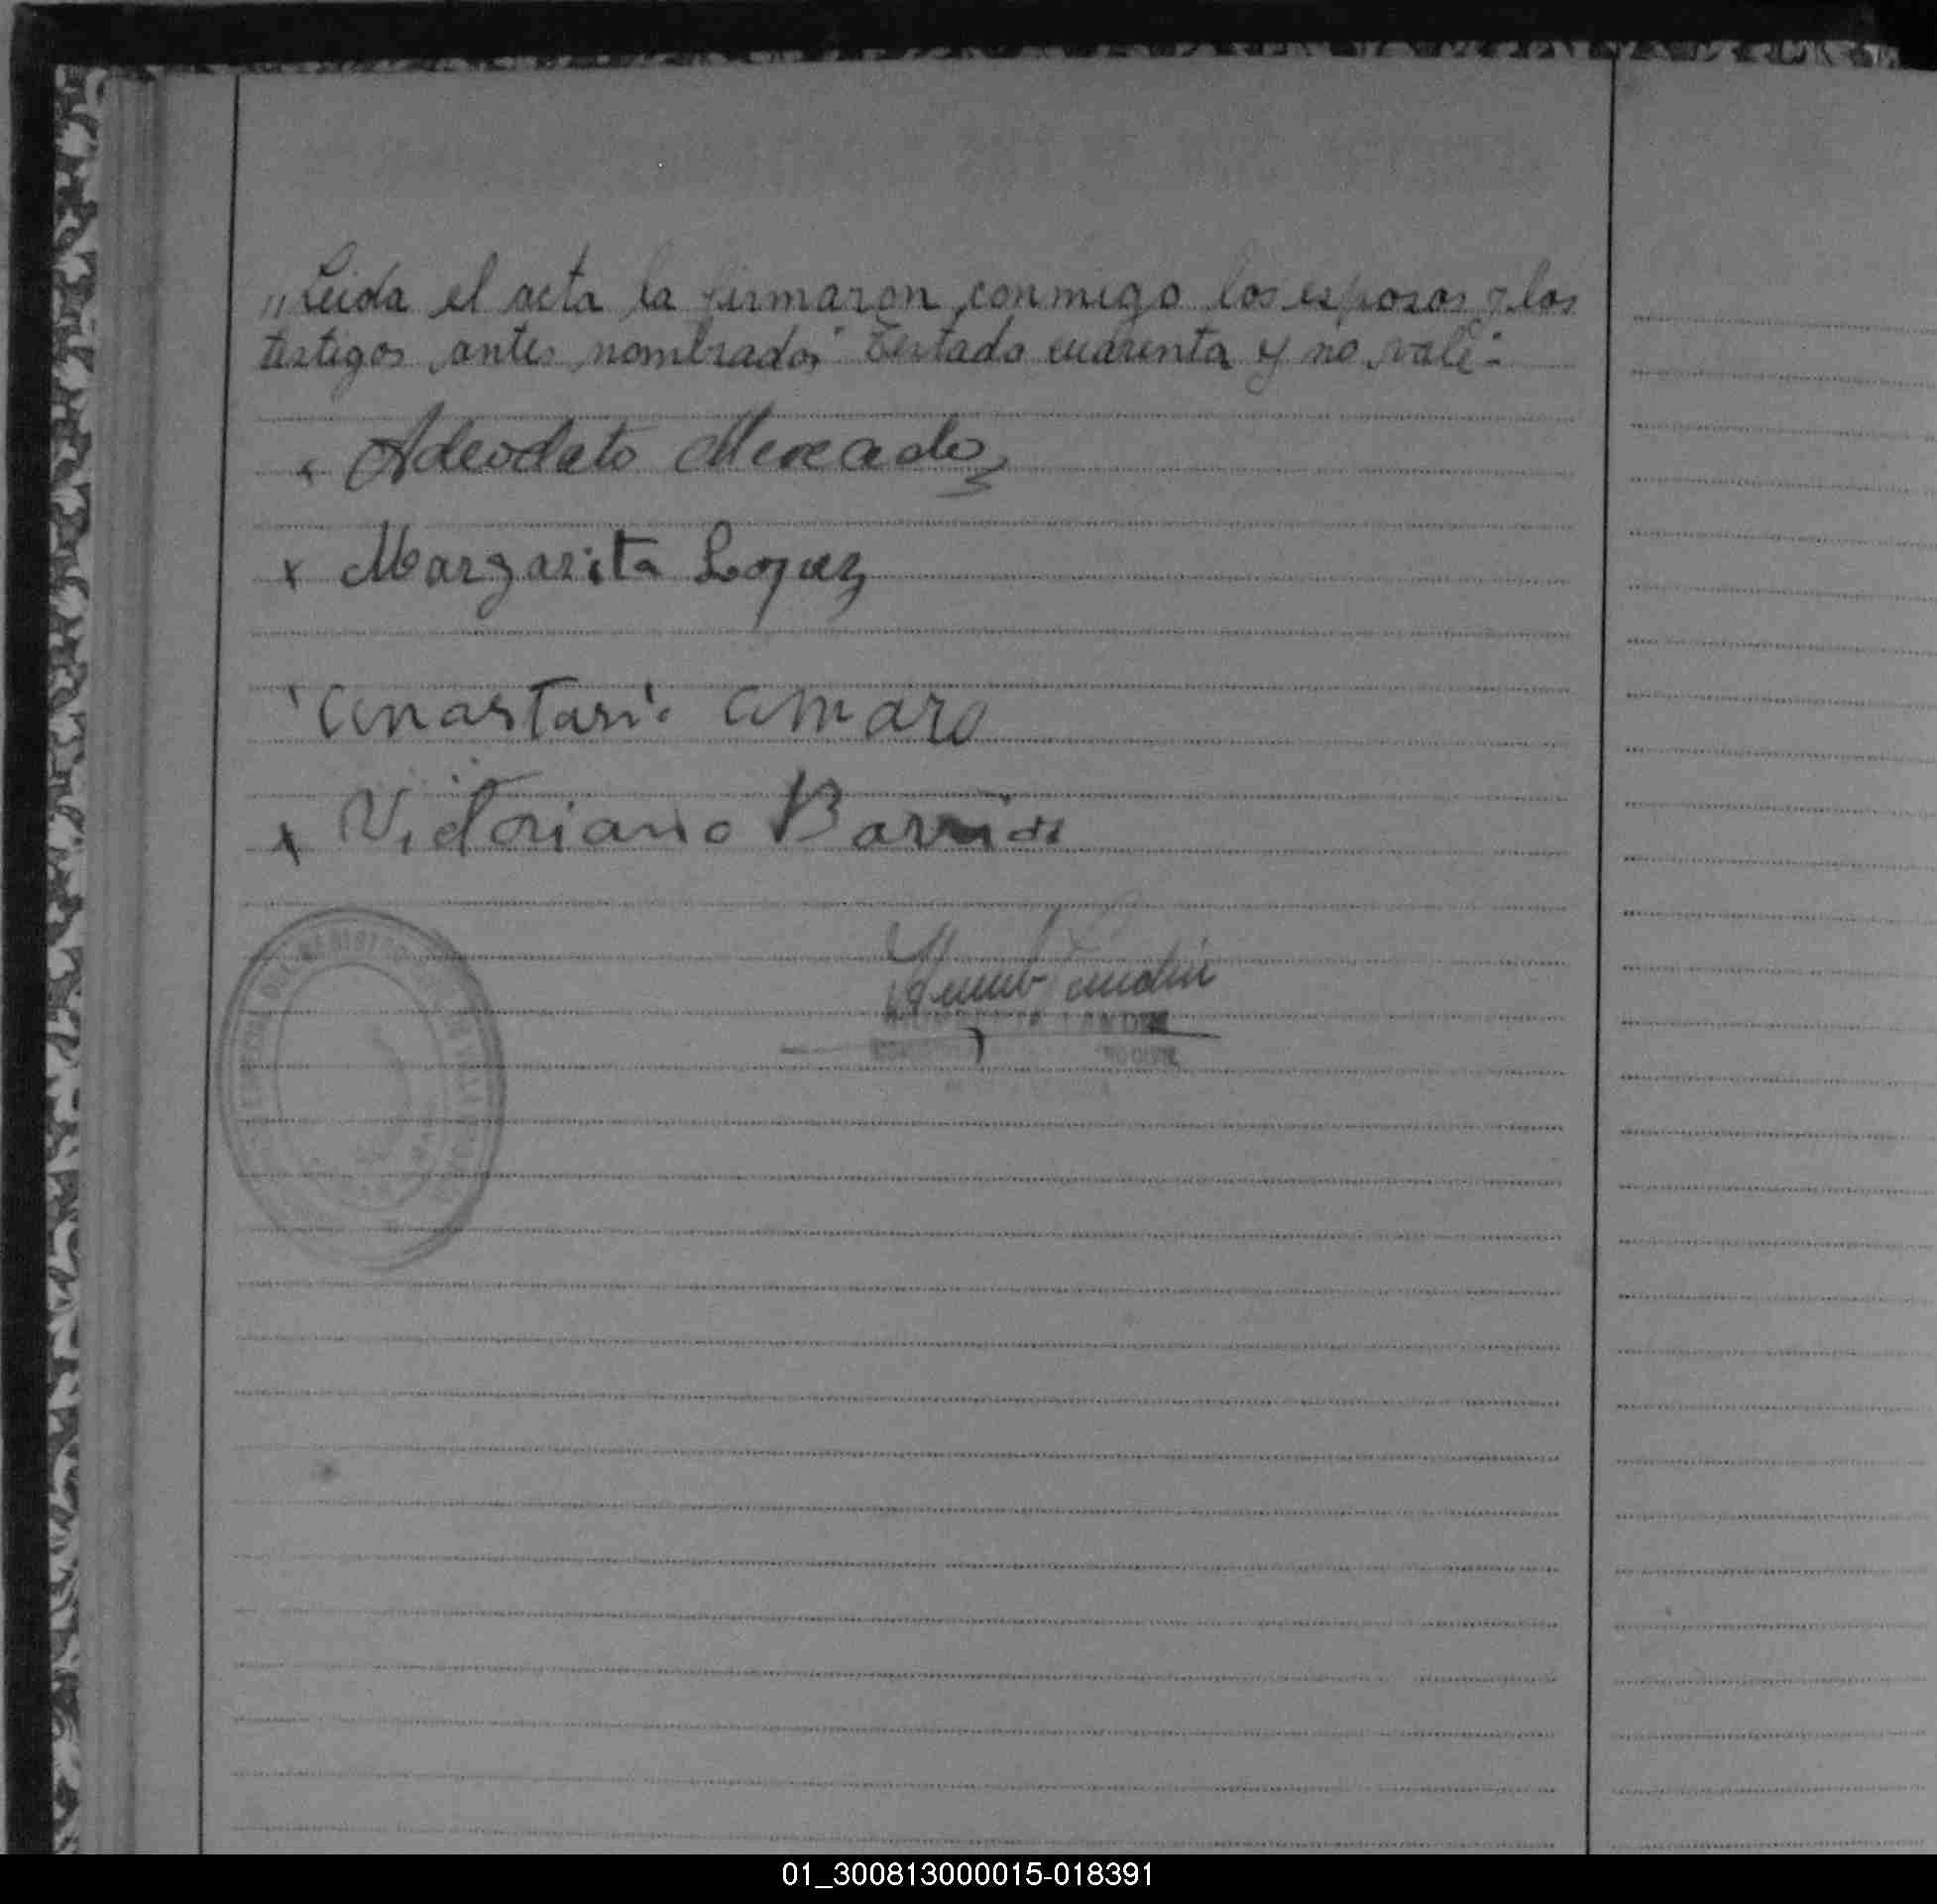 "Leida el acta la firmaron conmigo los esposos y los
testigos antes nombrados" Testado cuarenta y no vale.-
x Adeodato Mercado
x Margarita Lopez
Anastasio Amaro
x Victoriano Barrios
01_300813000015-018391